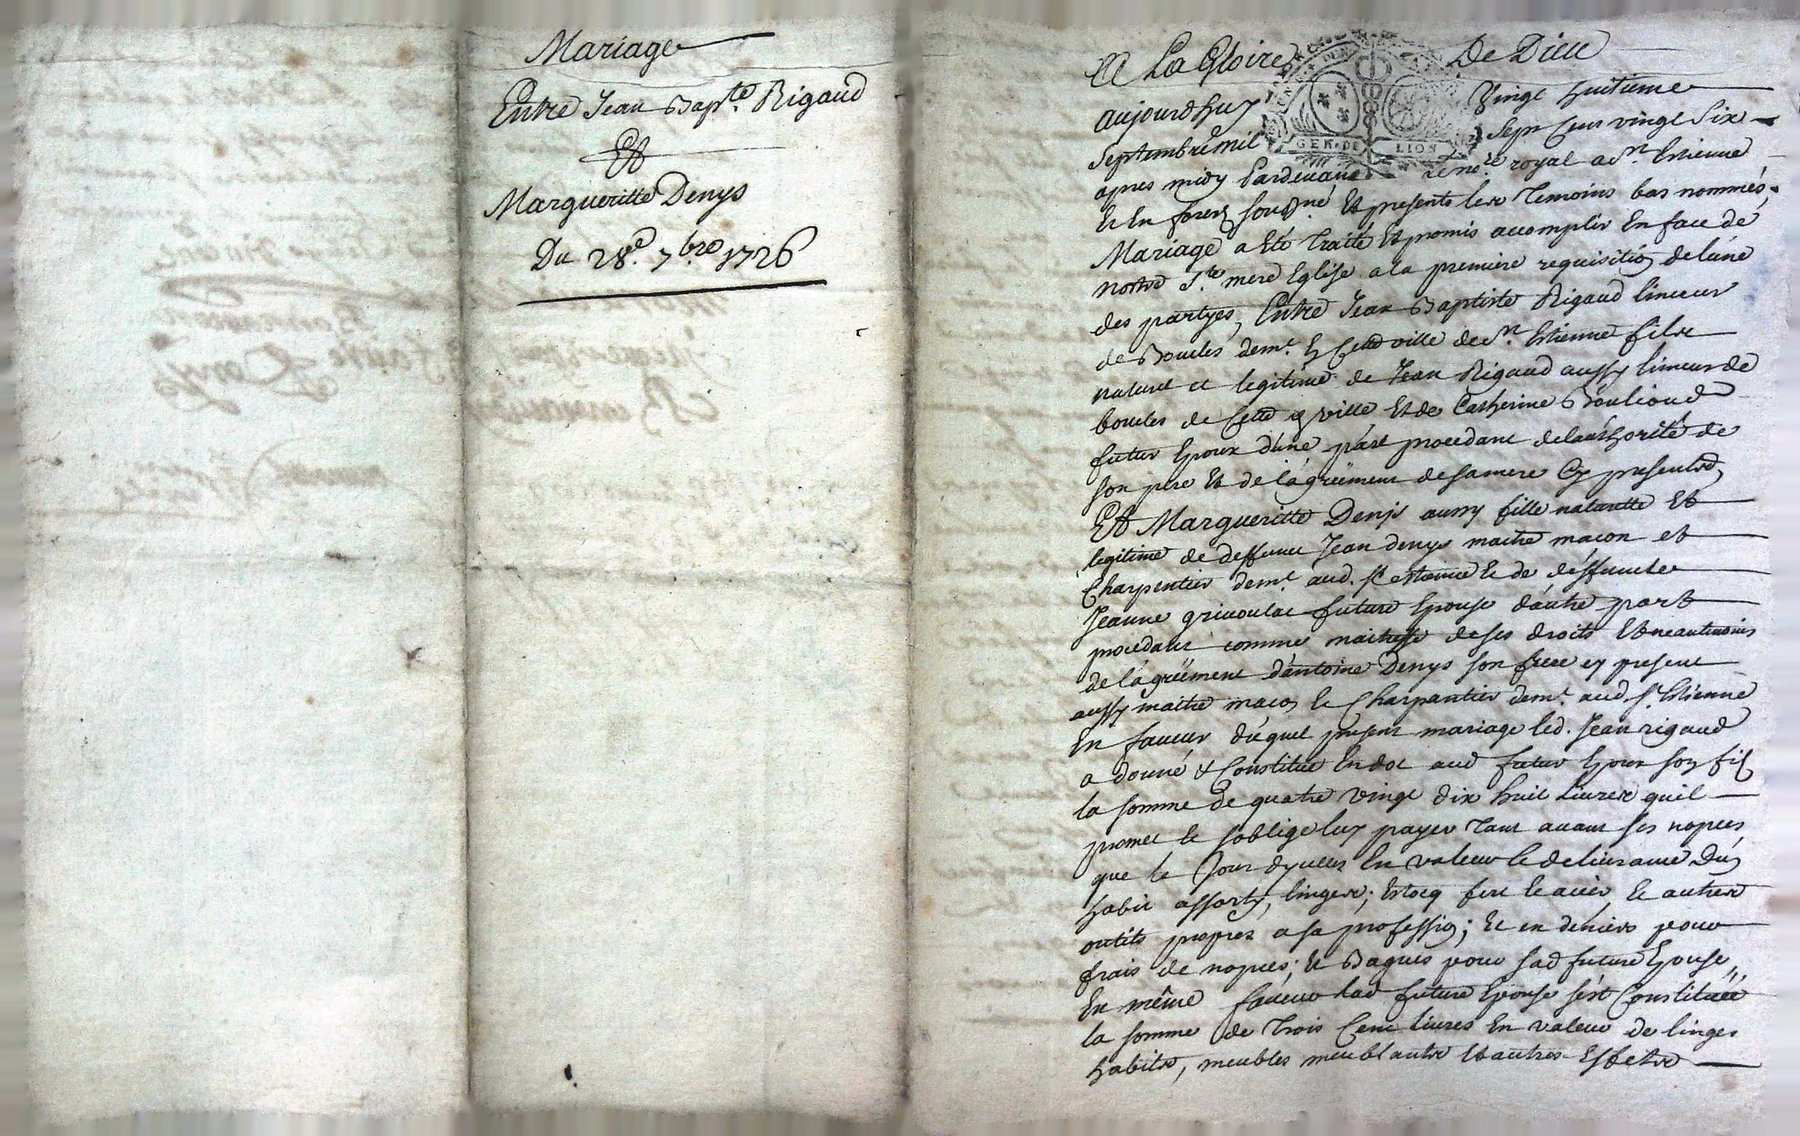 Mariage
Entre Jean Bap.te Rigaud
Et
Margueritte Denys
Du 28.e 7.bre 1726
A La Gloire De Dieu
aujourdhuy Vingt huitieme
Septembre mil Sept Cens vingt Six
apres midy Pardevant Le no.re royal a S.t Estienne
En forest soussigné Et presents les Temoins bas nommés,
Mariage a Eté Traité Et promis accomplir En face de
nostre S.te mere Eglise a la premiere requisition de lune
des partyes, Entre Jean Baptiste Rigaud limeur
de Boucles dem.t En Cette ville de S.t Estienne fils
naturel et legitime de Jean Rigaud aussy limeur de
boucles de Cette ville Et de Catherine Boulioud
futur Epoux d'une part procedant de lauthorité de
son pere Et de lagréement de sa mere Cy presents,
Et Margueritte Denys aussy fille naturelle Et
legitime de deffunct Jean denys maitre macon et
Charpentier dem.t aud. St estienne Et de deffuncte
Jeanne future Epouse d'autre part
procedant comme maitresse de ses droits Et neantmoins
de lagréement d'antoine Denys son frere cy present
aussy maitre macon Et Charpantier dem.t aud. S.t Estienne
En faveur duquel present mariage led. Jean rigaud
a donné & Constitué En dot aud futur Epoux son fils
la somme de quatre vingt dix huit Livres quil
promet Et soblige luy payer Tant avant ses nopces
que le Jour dycelles En valeur Et delivrance Dun
habit assorty, linges; Estocq fert Et acier, Et autres
outils propres a sa profession; Et en deniers pour
frais de nopces; Et Bagues pour sad future Epouse,,
En même faveur lad future Epouse s'est Constituée
la somme de Trois Cent livres En valeur de linges
habits, meubles meublants Et autres Effects
GEN. DE LION